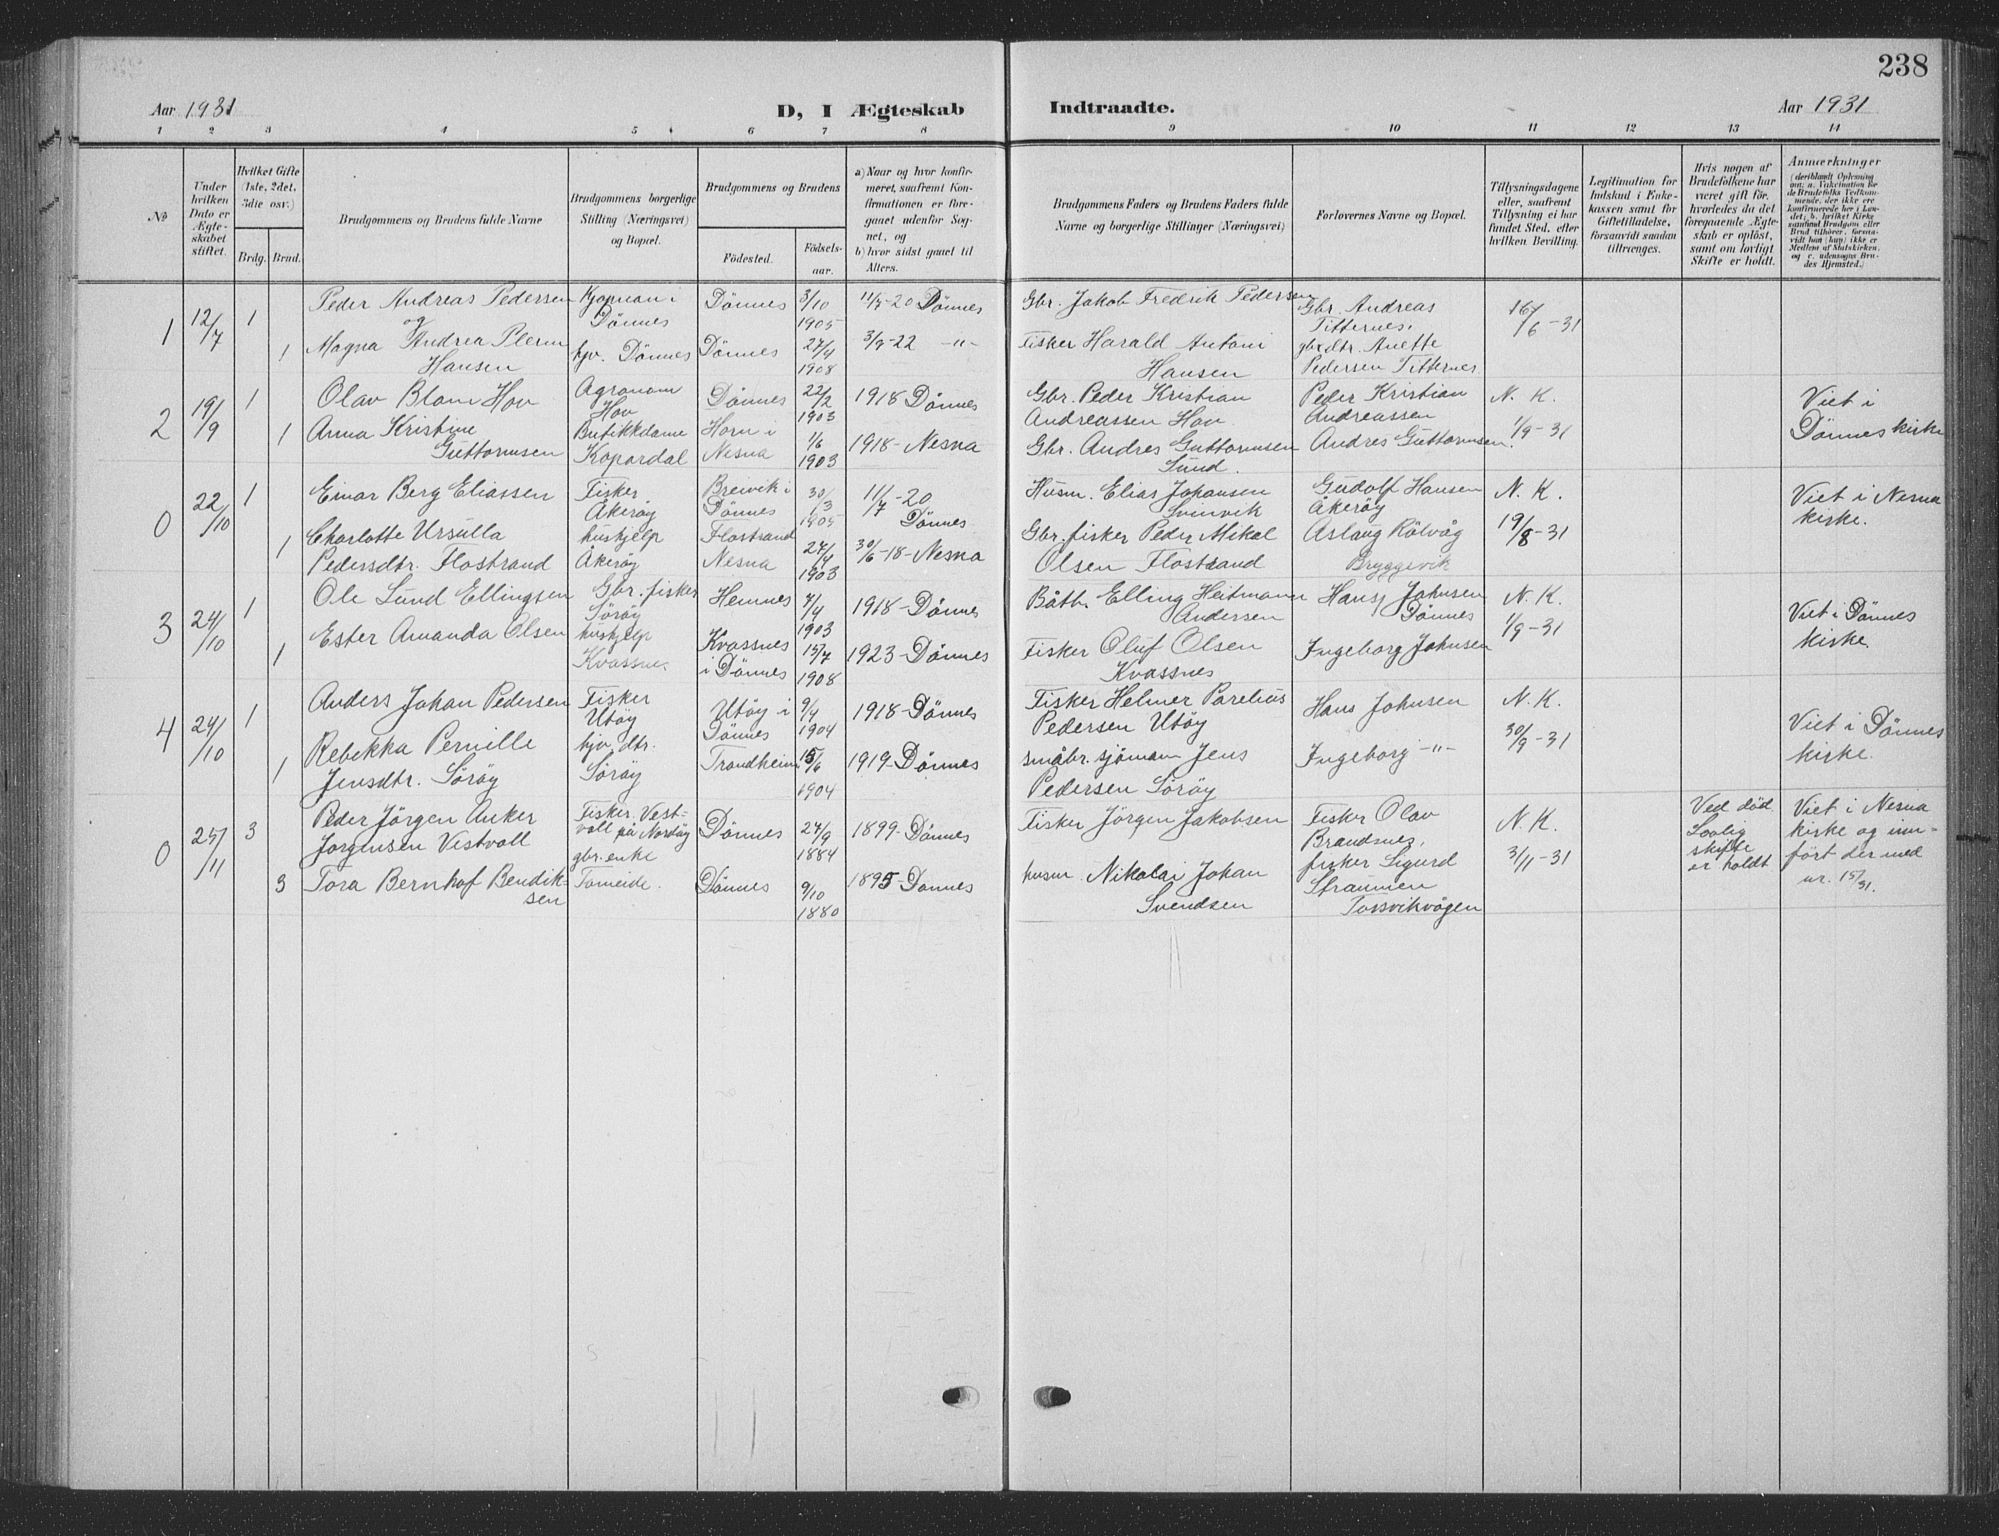 238
Aar 1931
D, I Ægteskab Indtraadte.
Aar 1931
1 2 3 4 5 6 7 8 9 10 11 12 13 14
No
Under hvilken Dato er Ægteskabet stiftet.
Hvilket Gifte (1ste, 2det, 3die osv.)
Brdg. Brud.
Brudgommens og Brudens fulde Navne
Brudgommens borgerlige Stilling (Næringsvei) og Bopæl.
Brudgommens og Brudens
Födested.
Födselsaar.
a) Naar og hvor konfirmeret, saafremt Konfirmationen er foregaaet udenför Sognet, og
b) hvor sidst gaaet til Alters.
Brudgommens Faders og Brudens Faders fulde Navne og borgerlige Stillinger (Næringsvei)
Forlovernes Navne og Bopæl.
Tillysningsdagene eller, saafremt Tillysning ei har fundet Sted, efter hvilken Bevilling.
Legitimation for Indskud i Enkekassen samt for Giftetilladelse, forsaavidt saadan tiltrænges.
Hvis nogen af Brudefolkene har været gift för, hvorledes da det foregaaende Ægteskab er oplöst, samt om lovligt Skifte er holdt.
Anmærkninger
1 12/7 1 Peder Andreas Pedersen Kjøpman i Dönnes Dönnes 3/10 1905 11/7-20 Dönnes Gbr. Jakob Fredrik Pedersen Gbr. Andreas Titternes. 16/6-31
og
1 Magna Andrea Hansen hjv. Dönnes Dönnes 27/4 1908 3/9-22 -"- Fisker Harald Antoni Hansen Anette Pedersen Titternes
2 19/9 1 Olav Blom Hov Agronom Hov Dönnes 22/2 1903 1918 Dönnes Gbr. Peder Kristian Andreassen Hov. Peder Kristian Andreassen N. K. Viet i Dönnes kirke
1 Anna Kristine Guttormsen Butikkdame Kopardal Horn i Nesna 1/6 1903 1918-Nesna Gbr. Andres Guttormsen Sund. Andres Guttormsen. 1/9-31
0 22/10 1 Einar Berg Eliassen Fisker Åkeröy Breivik i Dönnes 30/3 1905 11/7-20 Dönnes Husm. Elias Johansen Gudolf Hansen Åkeröy N. K. Viet i Nesna kirke.
1 Charlotte Ursulla Pedersdtr. Flostrand hushjelp Åkeröy Flostrand Nesna 27/4 1903 30/6-18-Nesna Gbr. fisker Peder Mikal Olsen Flostrand Aslaug Rölvåg Bryggevik 19/8-31
3 24/10 1 Ole Lund Ellingsen Gbr. fisker Söröy Hemnes 1903 1918-Dönnes Båtb. Elling Heitmann Andersen Hans Johnsen Dönnes N. K. Viet i Dönnes kirke.
1 Ester Amanda Olsen hushjelp Kvassnes Kvassnes i Dönnes 15/7 1908 1923-Dönnes Fisker Oluf Olsen Kvassnes Ingeborg Johnsen 1/9-31
4 24/10 1 Anders Johan Pedersen Fisker Utöy Utöy i Dönnes 9/4 1904 1918-Dönnes Fisker Helmer Parelius Pedersen Utöy Hans Johnsen N. K. Viet i Dönnes kirke.
1 Rebekka Pernille Jensdtr. Söröy hjv. dtr. Söröy Trondheim 15/6 1904 1919-Dönnes småbr. sjöman Jens Pedersen Söröy Ingeborg -"- 30/9-31
0 25/11 3 Peder Jörgen Anker Jörgensen Vestvoll Fisker. Vestvoll på Nordöy Dönnes 27/9 1884 1899-Dönnes Fisker Jörgen Jakobsen Fisker Olav Brandsnes. N. K. Ved död Lovlig skifte er holdt Viet i Nesna kirke og innfört der med nr. 15/31.
3 Tora Bernhof Bendiksen gbr. enke Tomeide. Dönnes 9/10 1880 1895-Dönnes husm. Nikolai Johan Svendsen fisker Sigurd Straumen 3/11-31